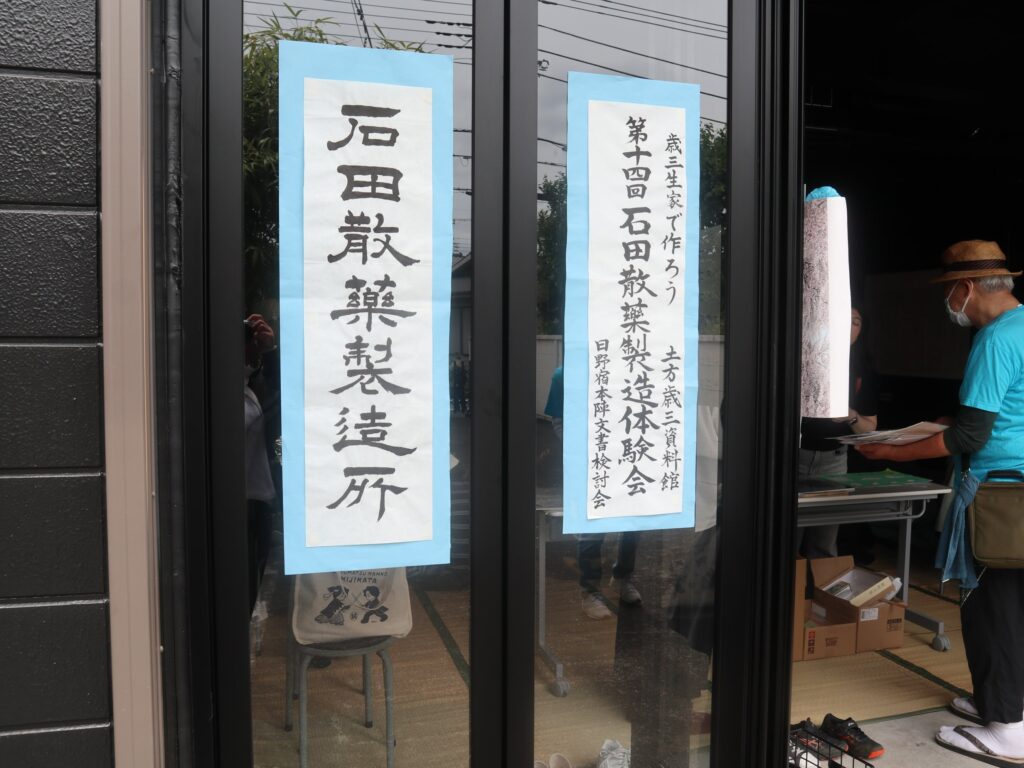 石田散藥製造所
歳三生家で作ろう 土方歳三資料館
第十四回石田散藥製造体験会
日野宿本陣文書検討会
HIJIKATA